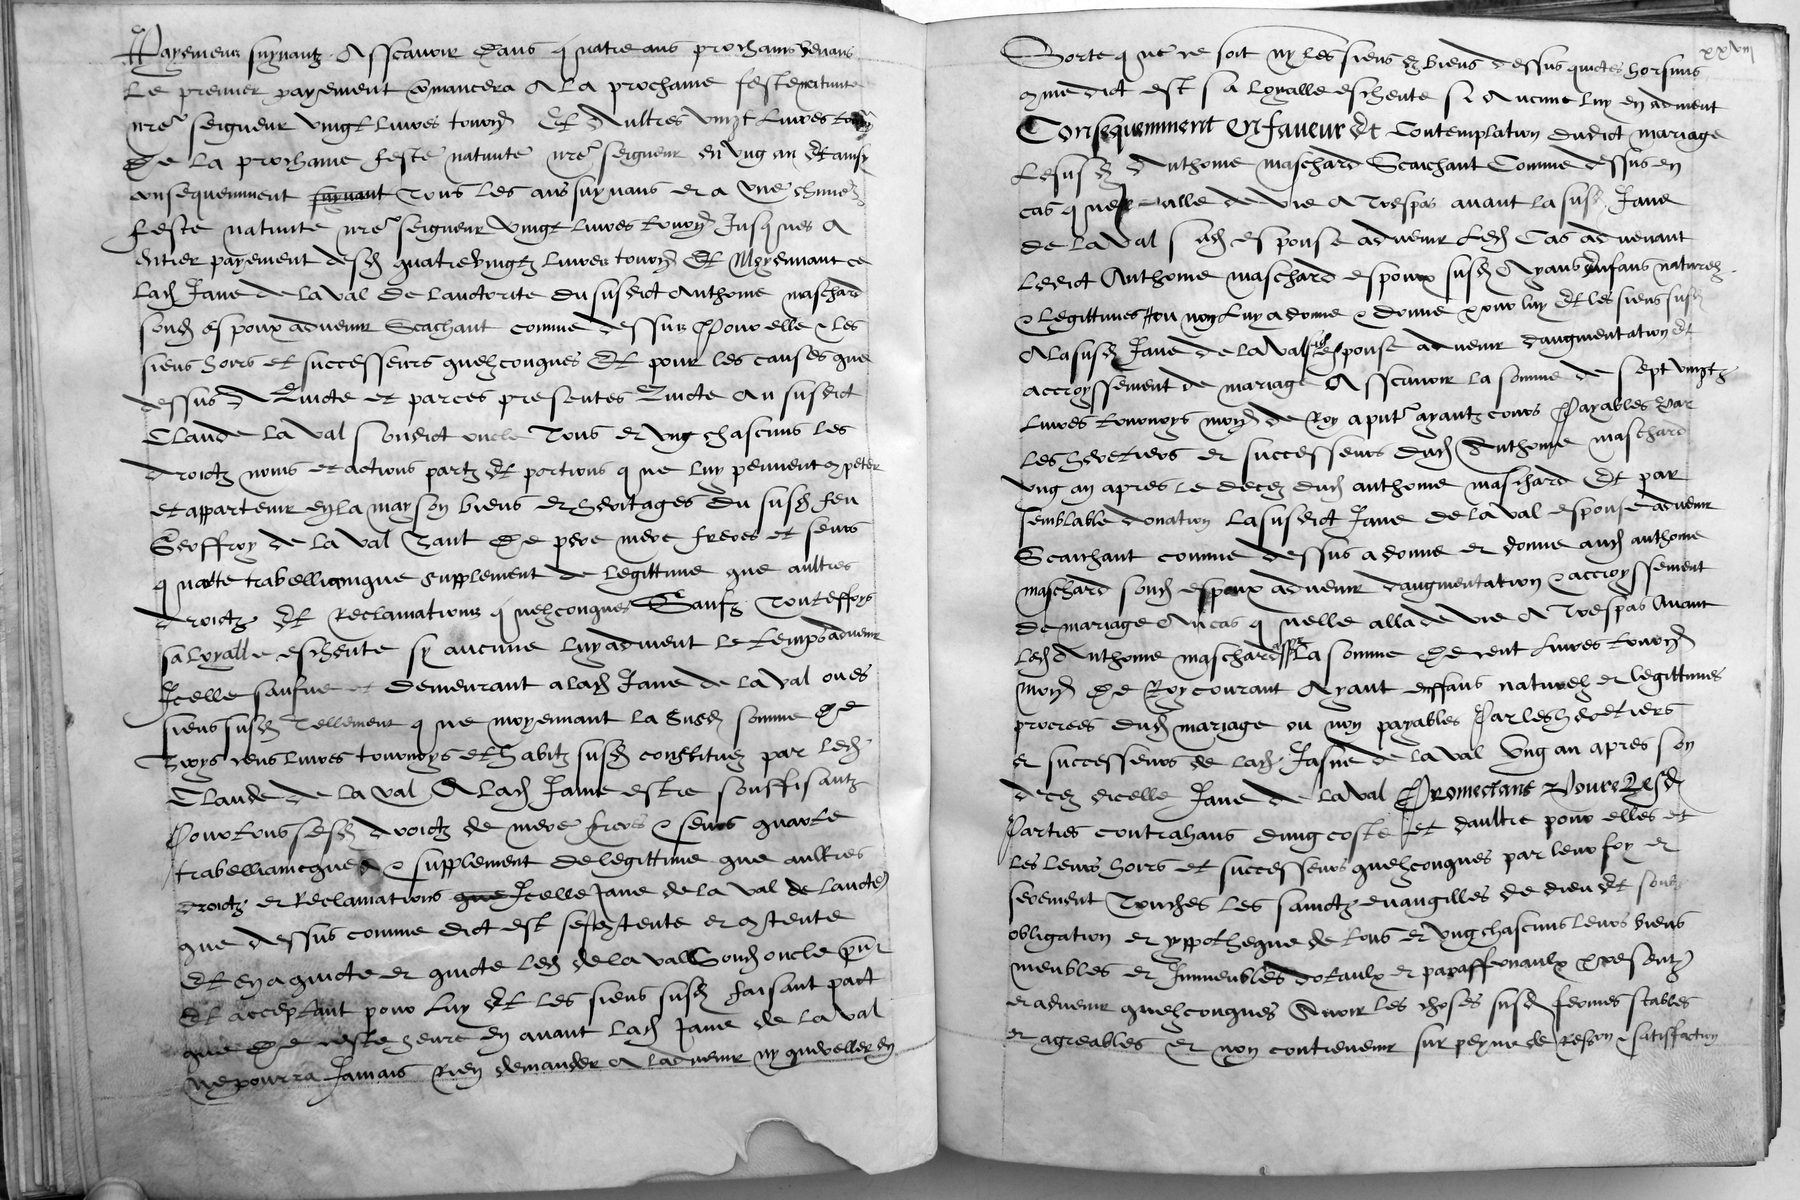 Payemens suyvantz Asscavoir dans quatre ans prochains venans
Le premier payement comancera A La prochaine feste nativite
nre seigneur vingt livres tourn Et d'aultres vingt livres tourn
De La prochaine feste nativite nre seigneur en vng an Et ainsy
consequemment suyvant Tous les ans suyvans et a vne chune
feste nativite nre seigneur vingt livres tourn Jusques A
entier payement desd quatre vingtz livres tourn Et Moyennant ce
Lad Jane de Laval De lauctorite du susdict Anthoine maschard
sond espoux advenir Scachant comme dessus Pour elle & les
siens hoirs et successeurs quelzconques Et pour les causes que
dessus A Quicte et par ces presentes Quicte Au susdict
Claude Laval sondict oncle Tous et vng chascuns les
droictz noms et actions partz Et portions que luy peuvent competer
et appartenir en la mayson biens et heritages du susd feu
Geoffroy de Laval Tant De pere mere freres et seurs
quatte trabellianique supplement de legittime que aultres
droictz Et Reclamations quelzconques Saufz Touteffoys
sa loyalle escheute sy aucune luy advient le temps advenir
Icelle saufve et demeurant a lad Jane de Laval ou es
siens susd Tellement que moyennant la susd somme De
Troys cens livres tournoys et habitz susd constituez par led
Claude de Laval A Lad Jane estre souffisantz
Pour tous sesd droictz de mere freres & seurs quarte
trabellianicque & supplement de legittime que aultres
droictz et Reclamations que Icelle Jane de Laval de laucte
que dessus comme dict est sest contente et contente
Et en a quicte et quicte led de Laval Sond oncle pnt
Et acceptant pour luy Et les siens susd faisant pact
que De ceste heure en avant lad Jane de Laval
ne pourra Jamais Rien demander A ladvenir ny quereller en
xxviii
Sorte que ce soit ny les siens es biens dessus quictes horsmis
comme dict est sa loyalle escheute si Aucune luy en advient
Consequemment en faveur Et Contemplation dudict mariage
Lesusd Anthoine maschard Scaichant Comme dessus en
cas quel alle de vie A Trespas avant la susd Jane
de Laval sad espouse advenir Led Cas advenant
Ledict Anthoine maschard espoux susd Ayans enfans naturelz
& legittimes ou non luy a donne & donne pour luy Et les siens susd
A la susd Jane de Laval sad espouse advenir daugmentation Et
accroyssement de mariage Asscavoir la somme de sept vingtz
Livres tournoys monn de Roy a pnt ayantz cours Payables par
les heretiers et successeurs dud Anthoine maschard
vng an apres le decez dud anthoine maschard Et par
semblable donation la susdict Jane de Laval espouse advenir
Scaichant comme dessus a donne et donne aud anthoine
maschard sond espoux advenir daugmentation & accroyssement
de mariage Au cas quelle alla de vie A Trespas Avant
led Anthoine maschard La somme De cent livres tourn
monn De Roy courant Ayant enffans naturelz et legittimes
procrees dud mariage ou non payables Par les heretiers
et successeurs de lad Jasne de Laval vng an apres son
decez dicelle Jane de Laval Promectans Pource Lesd
Parties contrahans dung coste et daultre pour elles et
les leurs hoirs et successeurs quelzconques par leur foy et
serement Touches les sainctz evangilles de dieu Et soubz
obligation et yppotheque de tous et vng chascuns leurs biens
meubles et Immeubles dotaulx et paraffernaulx presentz
et advenir quelzconques Avoir les choses susd fermes stables
et agreables et non contrevenir sur peyne de Reffon & satisfaction